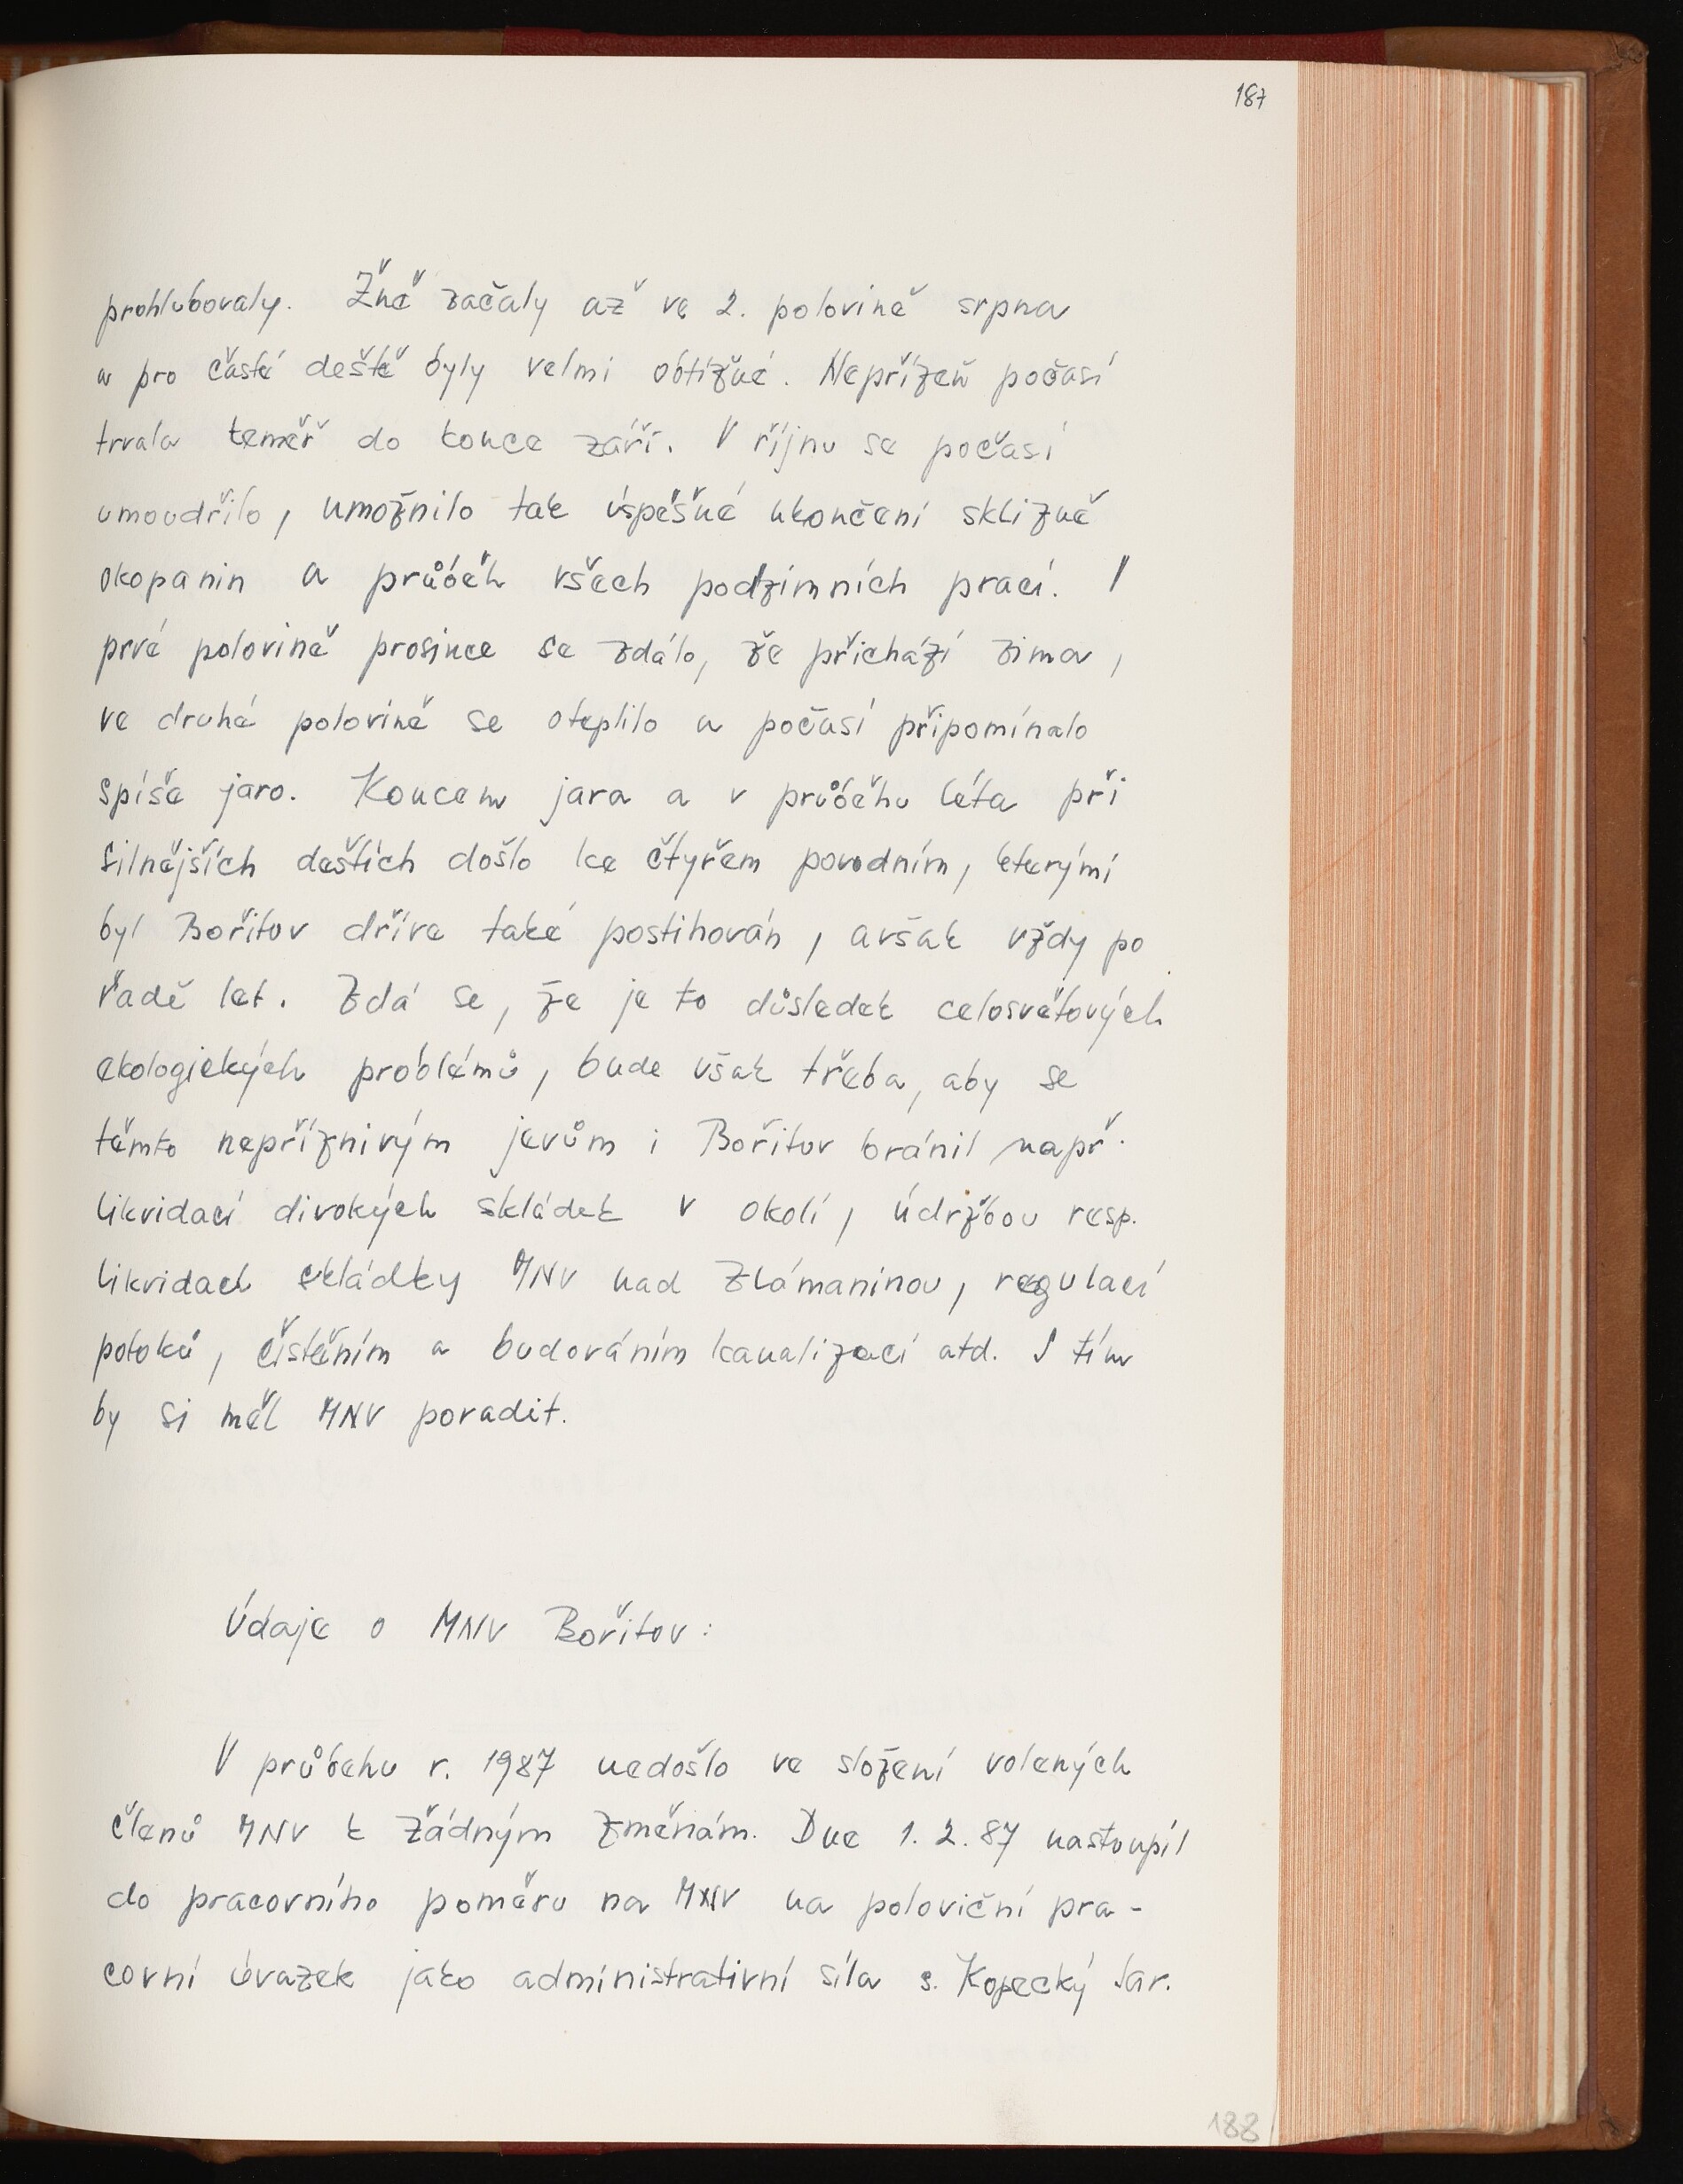 187
prohlubovaly. Žně začaly až ve 2. polovině srpna
a pro časté deště byly velmi obtížné. Nepřízeň počasí
trvala téměř do konce září. V říjnu se počasí
umoudřilo, umožnilo tak úspěšné ukončení sklizně
okopanin a průběh všech podzimních prací. V
prvé polovině prosince se zdálo, že přichází zima,
ve druhé polovině se oteplilo a počasí připomínalo
spíše jaro. Koncem jara a v průběhu léta při
silnějších deštích došlo ke čtyřem povodním, kterými
byl Bořitov dříve také postihován, avšak vždy po
řadě let. Zdá se, že je to důsledek celosvětových
ekologických problémů, bude však třeba, aby se
těmto nepříznivým jevům i Bořitov bránil např.
likvidací divokých skládek v okolí, údržbou resp.
likvidací skládky MNV nad Zlámaninou, regulací
potoků, čištěním a budováním kanalizací atd. S tím
by si měl MNV poradit.
Údaje o MNV Bořitov:
V průběhu r. 1987 nedošlo ve složení volených
členů MNV k žádným změnám. Dne 1. 2. 87 nastoupil
do pracovního poměru na MNV na poloviční pra-
covní úvazek jako administrativní síla s. Kopecký Jar.
188